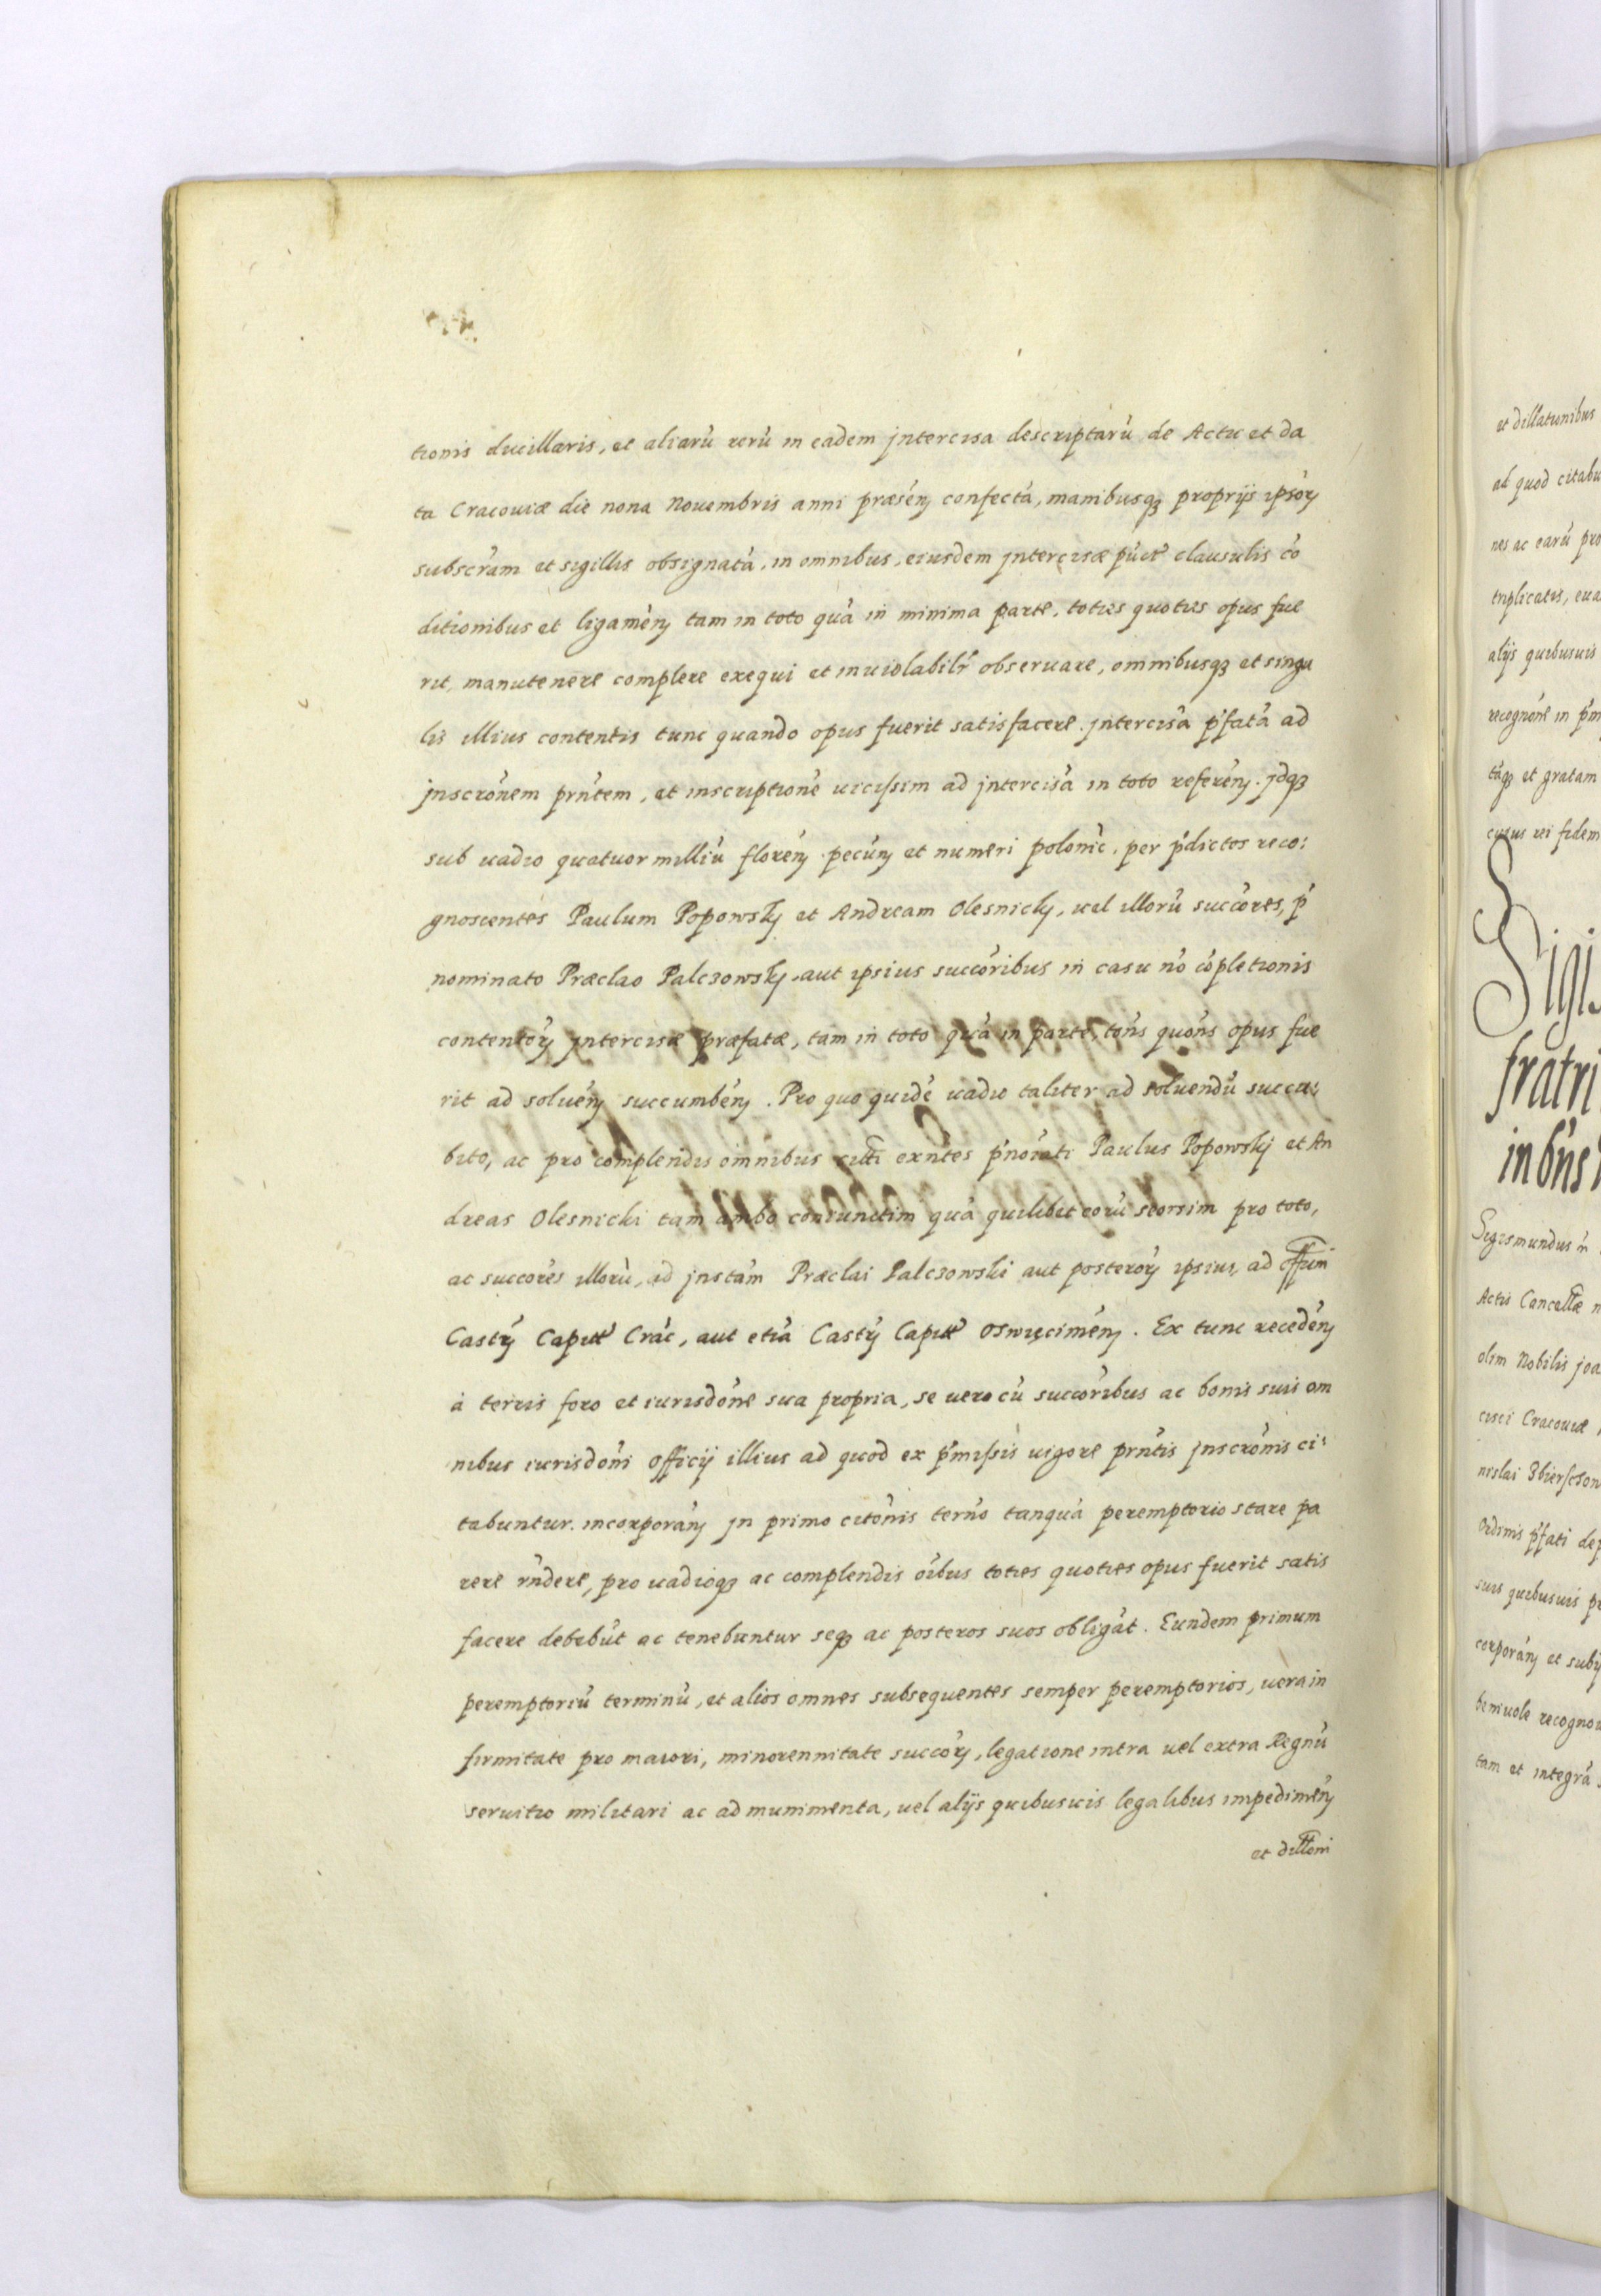 tionis ducillaris, et aliarū rerū in eadem jntercisa descriptarū de Actu et da
ta Cracouiæ die nona Nouembris anni præsén confectā, manibusqꝫ proprijs ipsorꝝ
subscr̄am et sigillis obsignatā, in omnibus, eiusdem jntercisæ pūct̄ clausulis cō
ditionibus et ligamēn tam in toto quā in minima parte, toties quoties opus fue
rit, manutenere complere exequi et inuiolabilr̄ obseruare, omnibusqꝫ et singu
lis illius contentis tunc quando opus fuerit satisfacere. jntercisā p̄fatā ad
jnscrōnem prn̄tem, et inscriptionē uicissim ad jntercisā in toto referēn. jdqꝫ
sub uadio quatuor milliū florēn pecūn et numeri polonic̄. per p̄dictos reco:
gnoscentes Paulum Popowskj et Andream Olesnickj, uel illorū succōres, p̄
nominato Præclao Palczowskj, aut ipsius succōribus in casu nō cōpletionis
contentorꝝ jntercisæ præfatæ, tam in toto quā in parte, tōns quōns opus fue
rit ad soluēn succumbēn. Pro quo quidē uadio taliter ad soluendū succu:
bito, ac pro complendis omnibus exn̄tes p̄noīati Paulus Popowskj et An
dreas Olesnicki tam ambo coniunctim quā quilibet eorū seorsim pro toto,
ac succōres illorū, ad jnstām Præclai Palczowski aut posterorꝝ ipsius, ad offīum
Castr̄ Capitt̄ Crac̄, aut etiā Castr̄ Capitt̄ Oswięcimēn. Ex tunc recedēn
à terris foro et iurisdōne sua propria, se uero cū succōribus ac bonis suis om
nibus iurisdōni officij illius ad quod ex p̄missis uigore prn̄tis jnscrōnis ci:
tabuntur. incorporān jn primo citōnis tern̄o tanquā peremptorio stare pa
rere rn̄dere, pro uadioqꝫ ac complendis oībus toties quoties opus fuerit satis
facere debebūt ac tenebuntur seqꝫ ac posteros suos obligāt. Eundem primum
peremptoriū terminū, et alios omnes subsequentes semper peremptorios, uera in
firmitate pro maiori, minorennitate succōrꝝ, legatione intra uel extra Regnū
seruitio militari ac ad munimenta, uel alijs quibusuis legalibus impedimēn
et dilltioni
et dillatunibus
ad quod citabu
nes ac earū pro
triplicatis, eua
alijs quibusuis
recognōne in p̄m
tāqꝫ et gratam
cuius rei fidem
Sigis
fratri
in bn̄s
Sigismundus
Actis Cancellæ
olim Nobilis joa
cisci Cracouiæ
nislai Zbierschon
Ordinis p̄fati dep
suis quibusuis pr
corporān et subij
beniuole recognou
tam et integrā